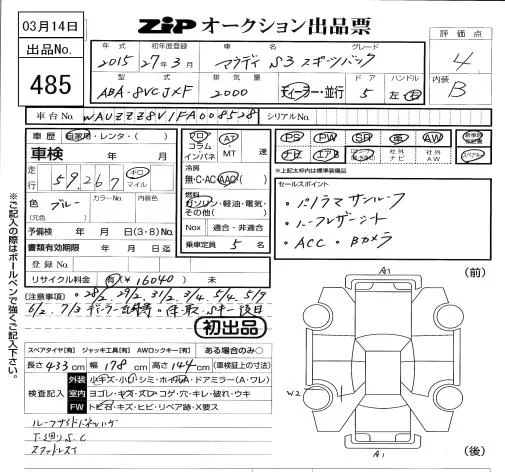 03月14日
ZiP オークション出品票
出品No.
485
年式 初年度登録 車名 グレード
2015 27年3月 アウディ S3 スポーツバック
型式 排気量 ドア ハンドル
ABA-8VCJXF 2000 ディーラー・並行 5 左・右
評価点
4
内装
B
車台No. WAUZZZ8V1FA008528 シリアルNo.
車歴 自家用・レンタ・( )
車検 年 月
走行 59,267 キロ マイル
色 ブルー カラーNo. 内装色
(元色 )
予備検 年 月 日(3・8)No.
書類有効期限 年 月 日迄
登録No.
リサイクル料金 有(¥16040) 未
フロア コラム インパネ AT・MT 速
冷房
無・C・AC・AAC
燃料
ガソリン・軽油・電気・その他( )
Nox 適合・非適合
乗車定員 5 名
PS PW SR 革 AW
ナビ エアB 社外ナビ 社外AW
スペアキー
※上記太枠内は標準装備品
セールスポイント
・パノラマサンルーフ
・ハーフレザーシート
・ACC ・Bカメラ
※ご記入の際はボールペンで強くご記入下さい。
(注意事項)・28/2. 29/2. 31/2. 3/4. 5/4. 5/9
6/2. 7/3 ディーラー記録簿・保・取・Sキー後日
初出品
スペアタイヤ[有] ジャッキ工具[有] AWロックキー[有] ある場合のみ○
長さ433cm 幅178cm 高さ144cm (車検証上の寸法)
検査記入
外装 小キズ・小凹・シミ・ホイルA・ドアミラー(A・ワレ)
室内 ヨゴレ・キズ・スレ・コゲ・穴・キレ・破れ・ウキ
FW トビ石・キズ・ヒビ・リペア跡・X要ス
T.廻りS.C
A1
(前)
W2
A1
(後)